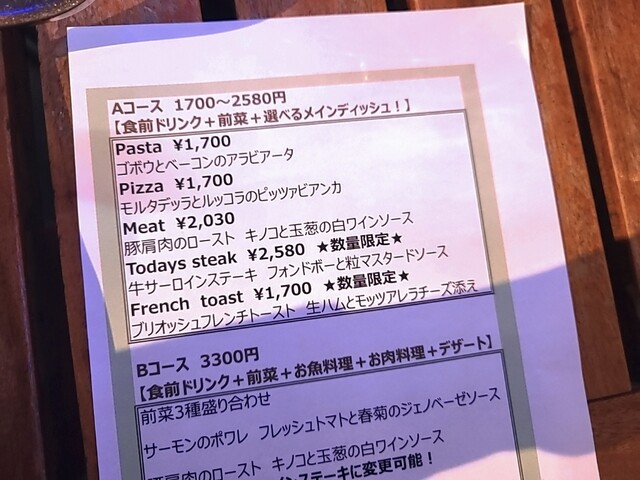 Aコース 1700～2580円
【食前ドリンク＋前菜＋選べるメインディッシュ！】
Pasta ¥1,700
ゴボウとベーコンのアラビアータ
Pizza ¥1,700
モルタデッラとルッコラのピッツァビアンカ
Meat ¥2,030
豚肩肉のロースト キノコと玉葱の白ワインソース
Todays steak ¥2,580 ★数量限定★
牛サーロインステーキ フォンドボーと粒マスタードソース
French toast ¥1,700 ★数量限定★
ブリオッシュフレンチトースト 生ハムとモッツアレラチーズ添え
Bコース 3300円
【食前ドリンク＋前菜＋お魚料理＋お肉料理＋デザート】
前菜3種盛り合わせ
サーモンのポワレ フレッシュトマトと春菊のジェノベーゼソース
豚肩肉のロースト キノコと玉葱の白ワインソース
インステーキに変更可能！